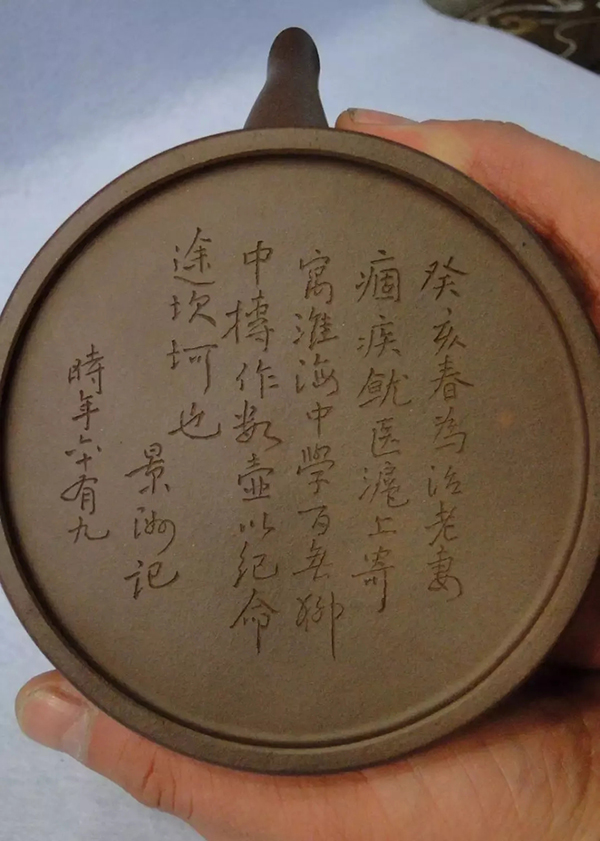 癸亥春為治老妻
痼疾就医滬上寄
寓淮海中學百無聊
中摶作数壺以纪命
途坎坷也
景洲记
時年六十有九